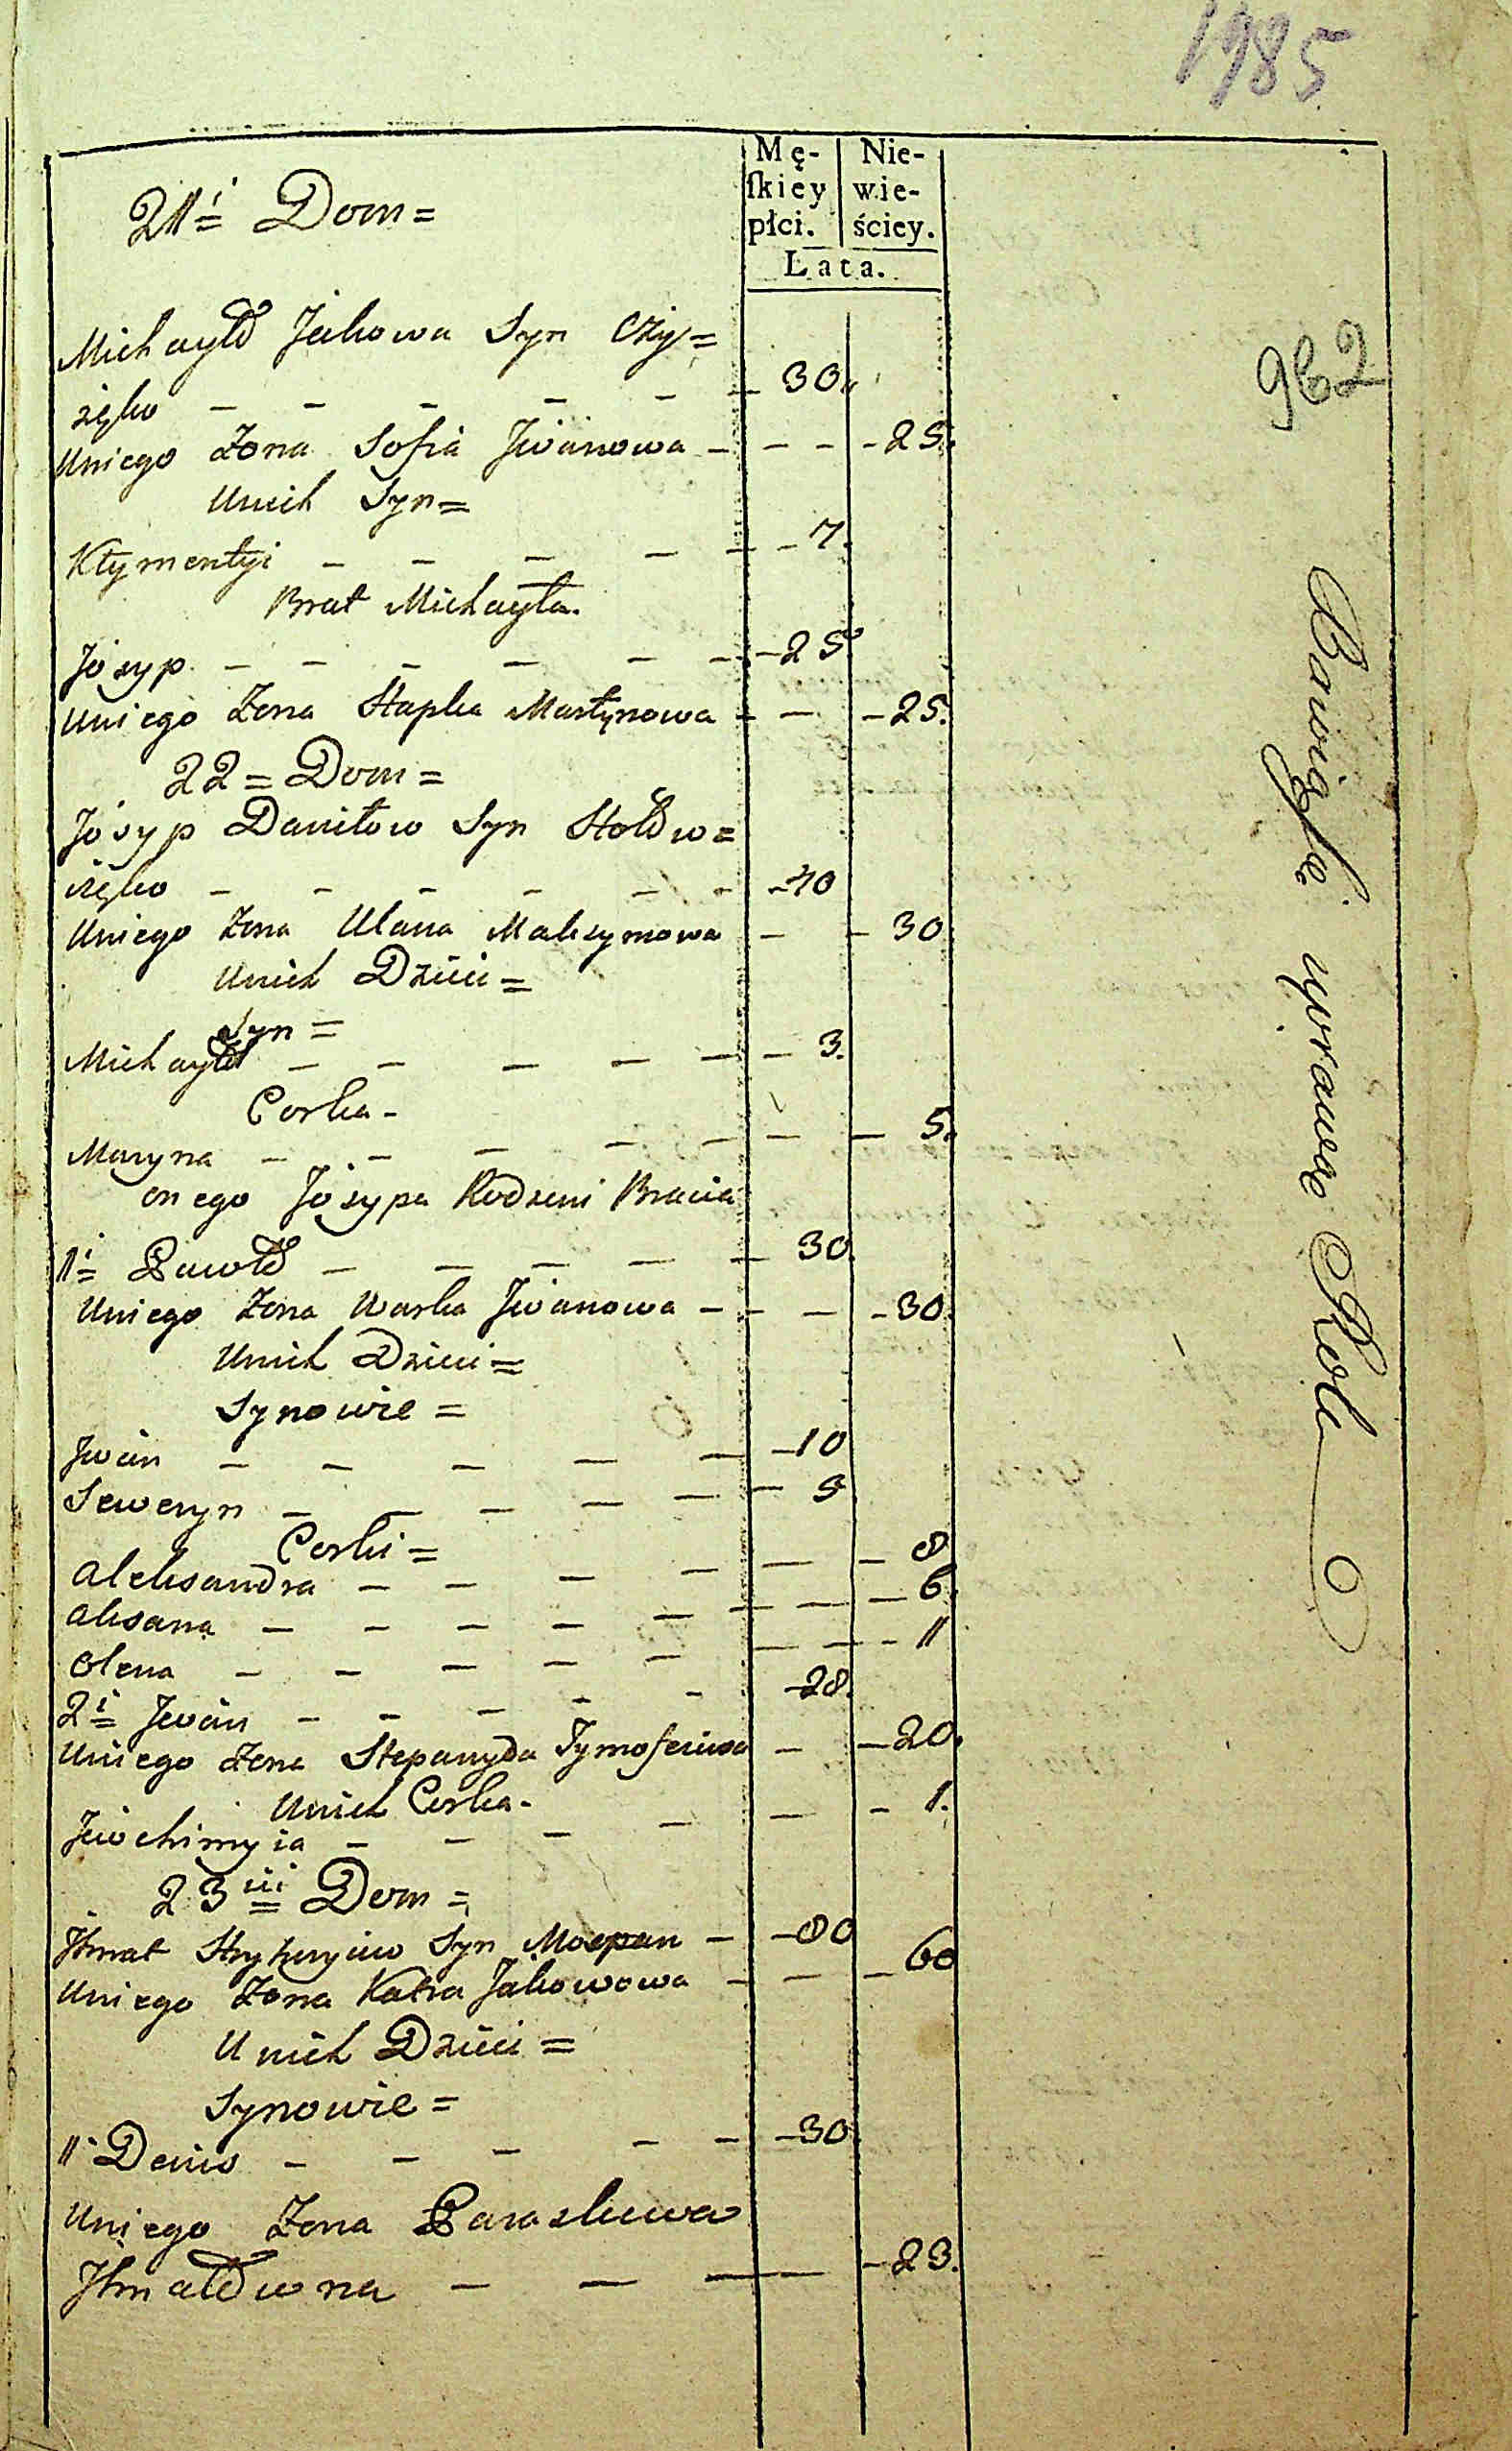 1985
Mę-
ſkiey
płci.
Nie-
wie-
ściey.
Lata.
21i Dom =
Michayło Jakowa Syn Czy=
żęko - - - - - - 30.
Uniego Zona Sofia Jwanowa - - - - 25.
Unich Syn =
Kłymentyi - - - - - - 7.
Brat Michayła.
Josyp - - - - - - - 25
Uniego Zona Stapka Martynowa - - - 25.
22 = Dom =
Josyp Daniłow Syn
- - - - - - - 40
Uniego Zona Ulana Maksymowa - - 30
Unich Dzieci =
Syn =
Michayło - - - - - - 3.
Corka -
Maryna - - - - - - - 5.
onego Josypa Rodzeni Bracia
1i Pawło - - - - - 30.
Uniego Zona Warka Jwanowa - - - - 30.
Unich Dzieci =
Synowie =
Jwan - - - - - - 10
Seweryn - - - - - - 5
Corki =
Aleksandra - - - - - - 8
Aksana - - - - - - - - 6.
Olena - - - - - - - - 11
2i Jwan - - - - - - 28.
Uniego Zona Stepanyda Tymofeiwa - - 20.
Unich Corka -
Jewchimyia - - - - - - 1.
23ci Dom =
Jhnat Hryhoryiow Syn - - 80
Uniego Zona Katra Jakowowa - - - 60
Unich Dzieci =
Synowie =
1. Denis - - - - - - 30
Uniego Zona Paraskewa
Jhnatowna - - - - - 23.
962
uprawą Roli